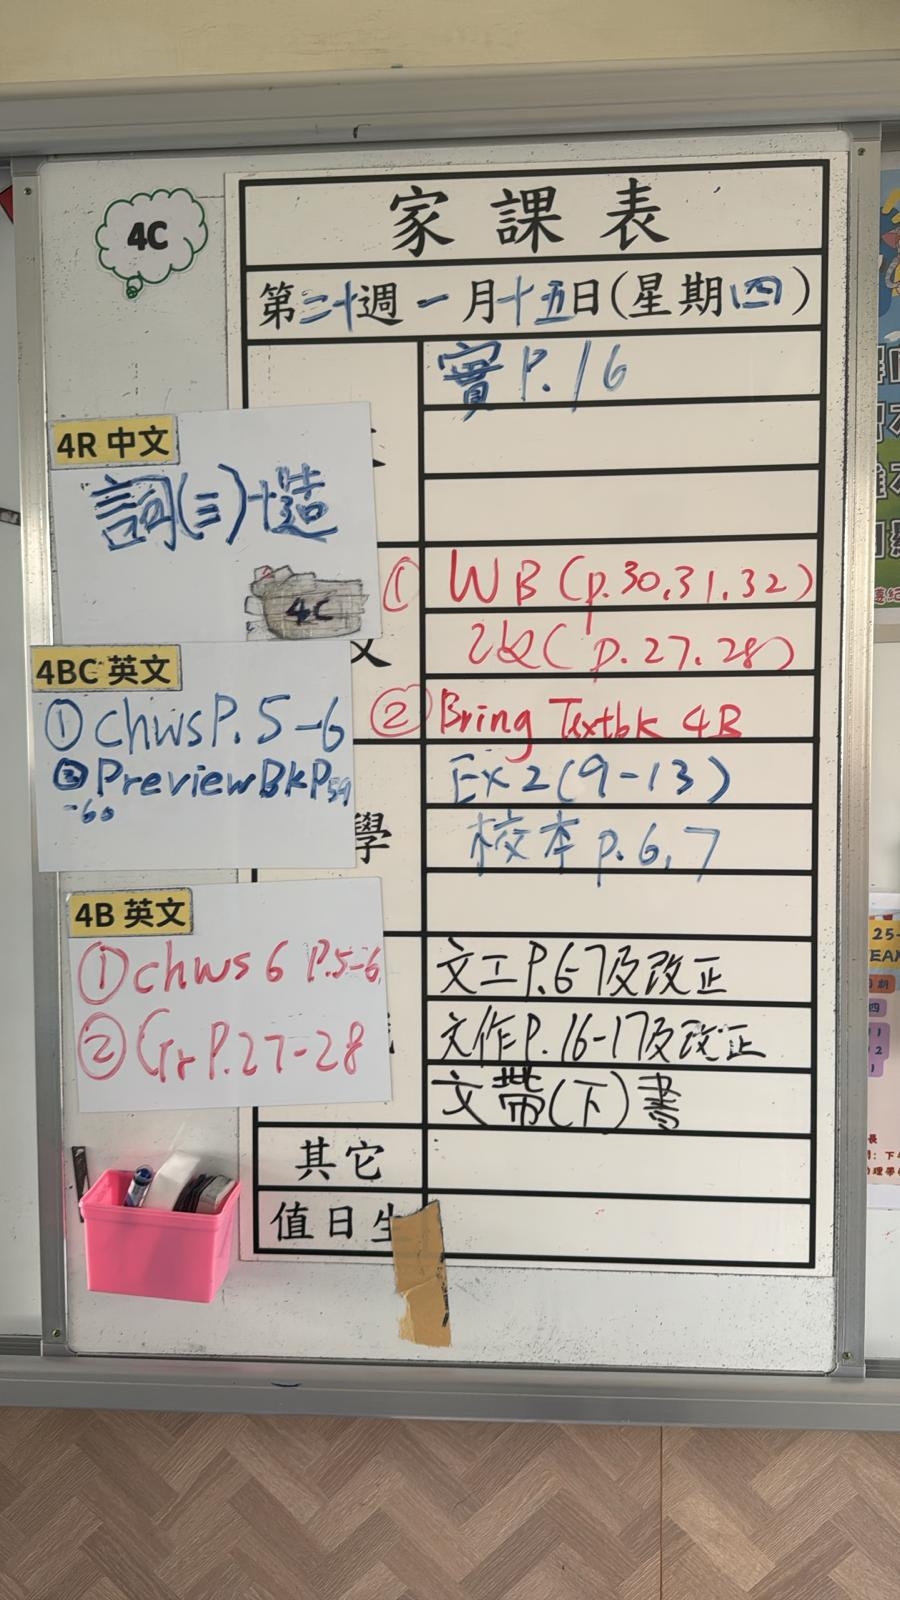 4C
家課表
第二十週一月十五日(星期四)
實P.16
4R 中文
詞(三)+造
4C
① WB (p.30,31,32)
改( p.27.28)
② Bring Textbk 4B
4BC 英文
① Chws P. 5-6
② Preview Bk P59
-60
學
Ex 2 (9-13)
校本 p.6,7
4B 英文
① chws 6 P.5-6
② Gr P.27-28
文工P.6-7及改正
文作P.16-17及改正
文帶(下)書
其它
值日生
25-